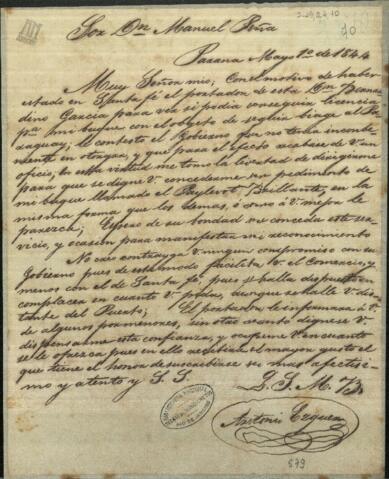 Sor Dn Manuel Peña
Parana Mayo 1º de 1844
Muy Señor mio; Con el motivo de haber
estado en Santa fé el portador de esta Dn Bernar
dino Garcia para ver si podia conseguir licencia
pa mi buque con el objeto de seguir biage al Pa
raguay; le contesto el Gobierno que no tenia inconbe
niente en otorgar, y que para el efecto
oficio, en esta virtud me tomo la livertad de dirigirme
para que se digne V. concederme un pedimento de
mi buque llamado el Paylevot Brillante, en la
misma forma que los demas, ó como á V. mejor le
paresca; Espero de su bondad me conceda este ser
vicio, y ocasion para manifestar mi reconocimiento
No cre contrayga V. ningun compromiso con su
Gobierno pues de este modo facilita V. el Comercio, y
menos con el de Santa fé, pues se halla dispuesto en
complacer en cuanto V. pida, aunque se halle V. dis
tante del Puerto; El portador le informara á V.
de algunos pormenores, sin otro asunto dignese V.
dispensarme esta confianza, y ocuparme V. en cuanto
se le ofresca pues en ello recibirá el mayor gusto el
que tiene el honor de suscribirse su mas afectisi
mo y atento y S. S.
Q. S. M. B.
Antonio Ezquer
579